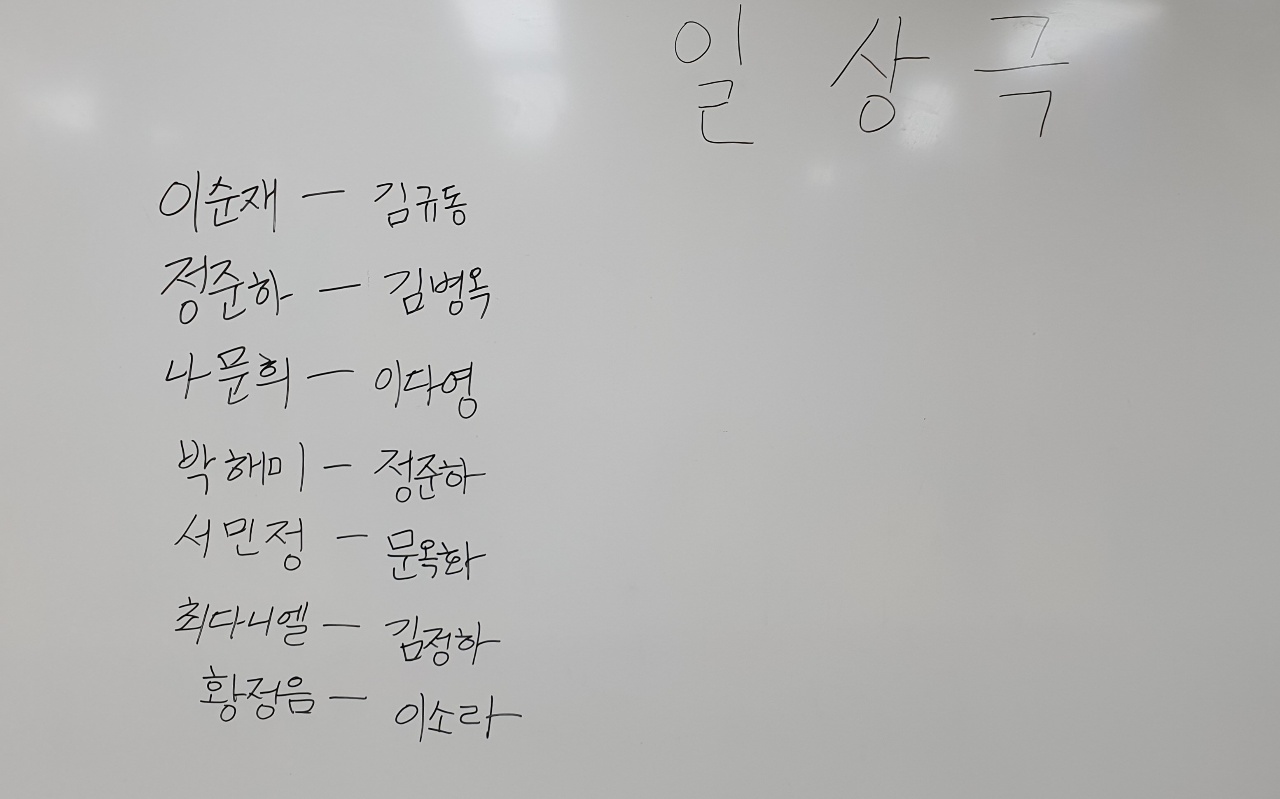 일 상 극
이순재 — 김규동
정준하 — 김병옥
나문희 — 이다영
박해미 — 정준하
서민정 — 문옥화
최다니엘 — 김정하
황정음 — 이소라